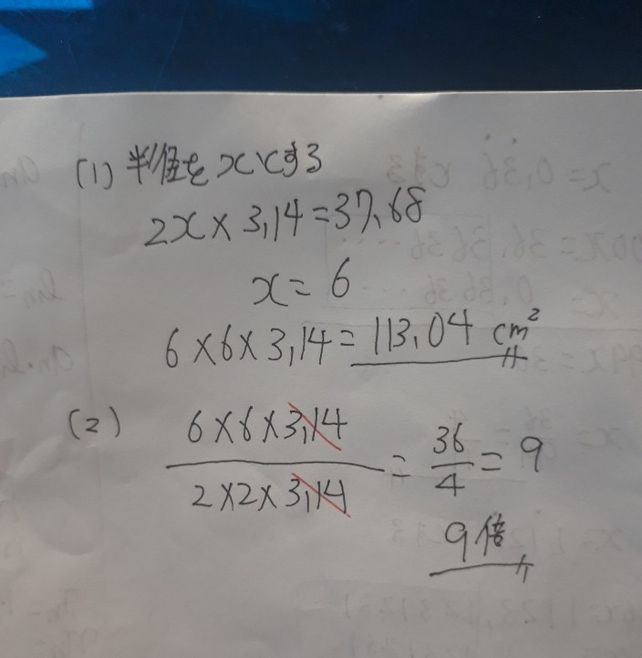 (1) 半径をxとする
2x×3.14=37.68
x=6
6×6×3.14=113.04 cm²
(2) 6×6×3.14 / 2×2×3.14 = 36/4 = 9
9倍